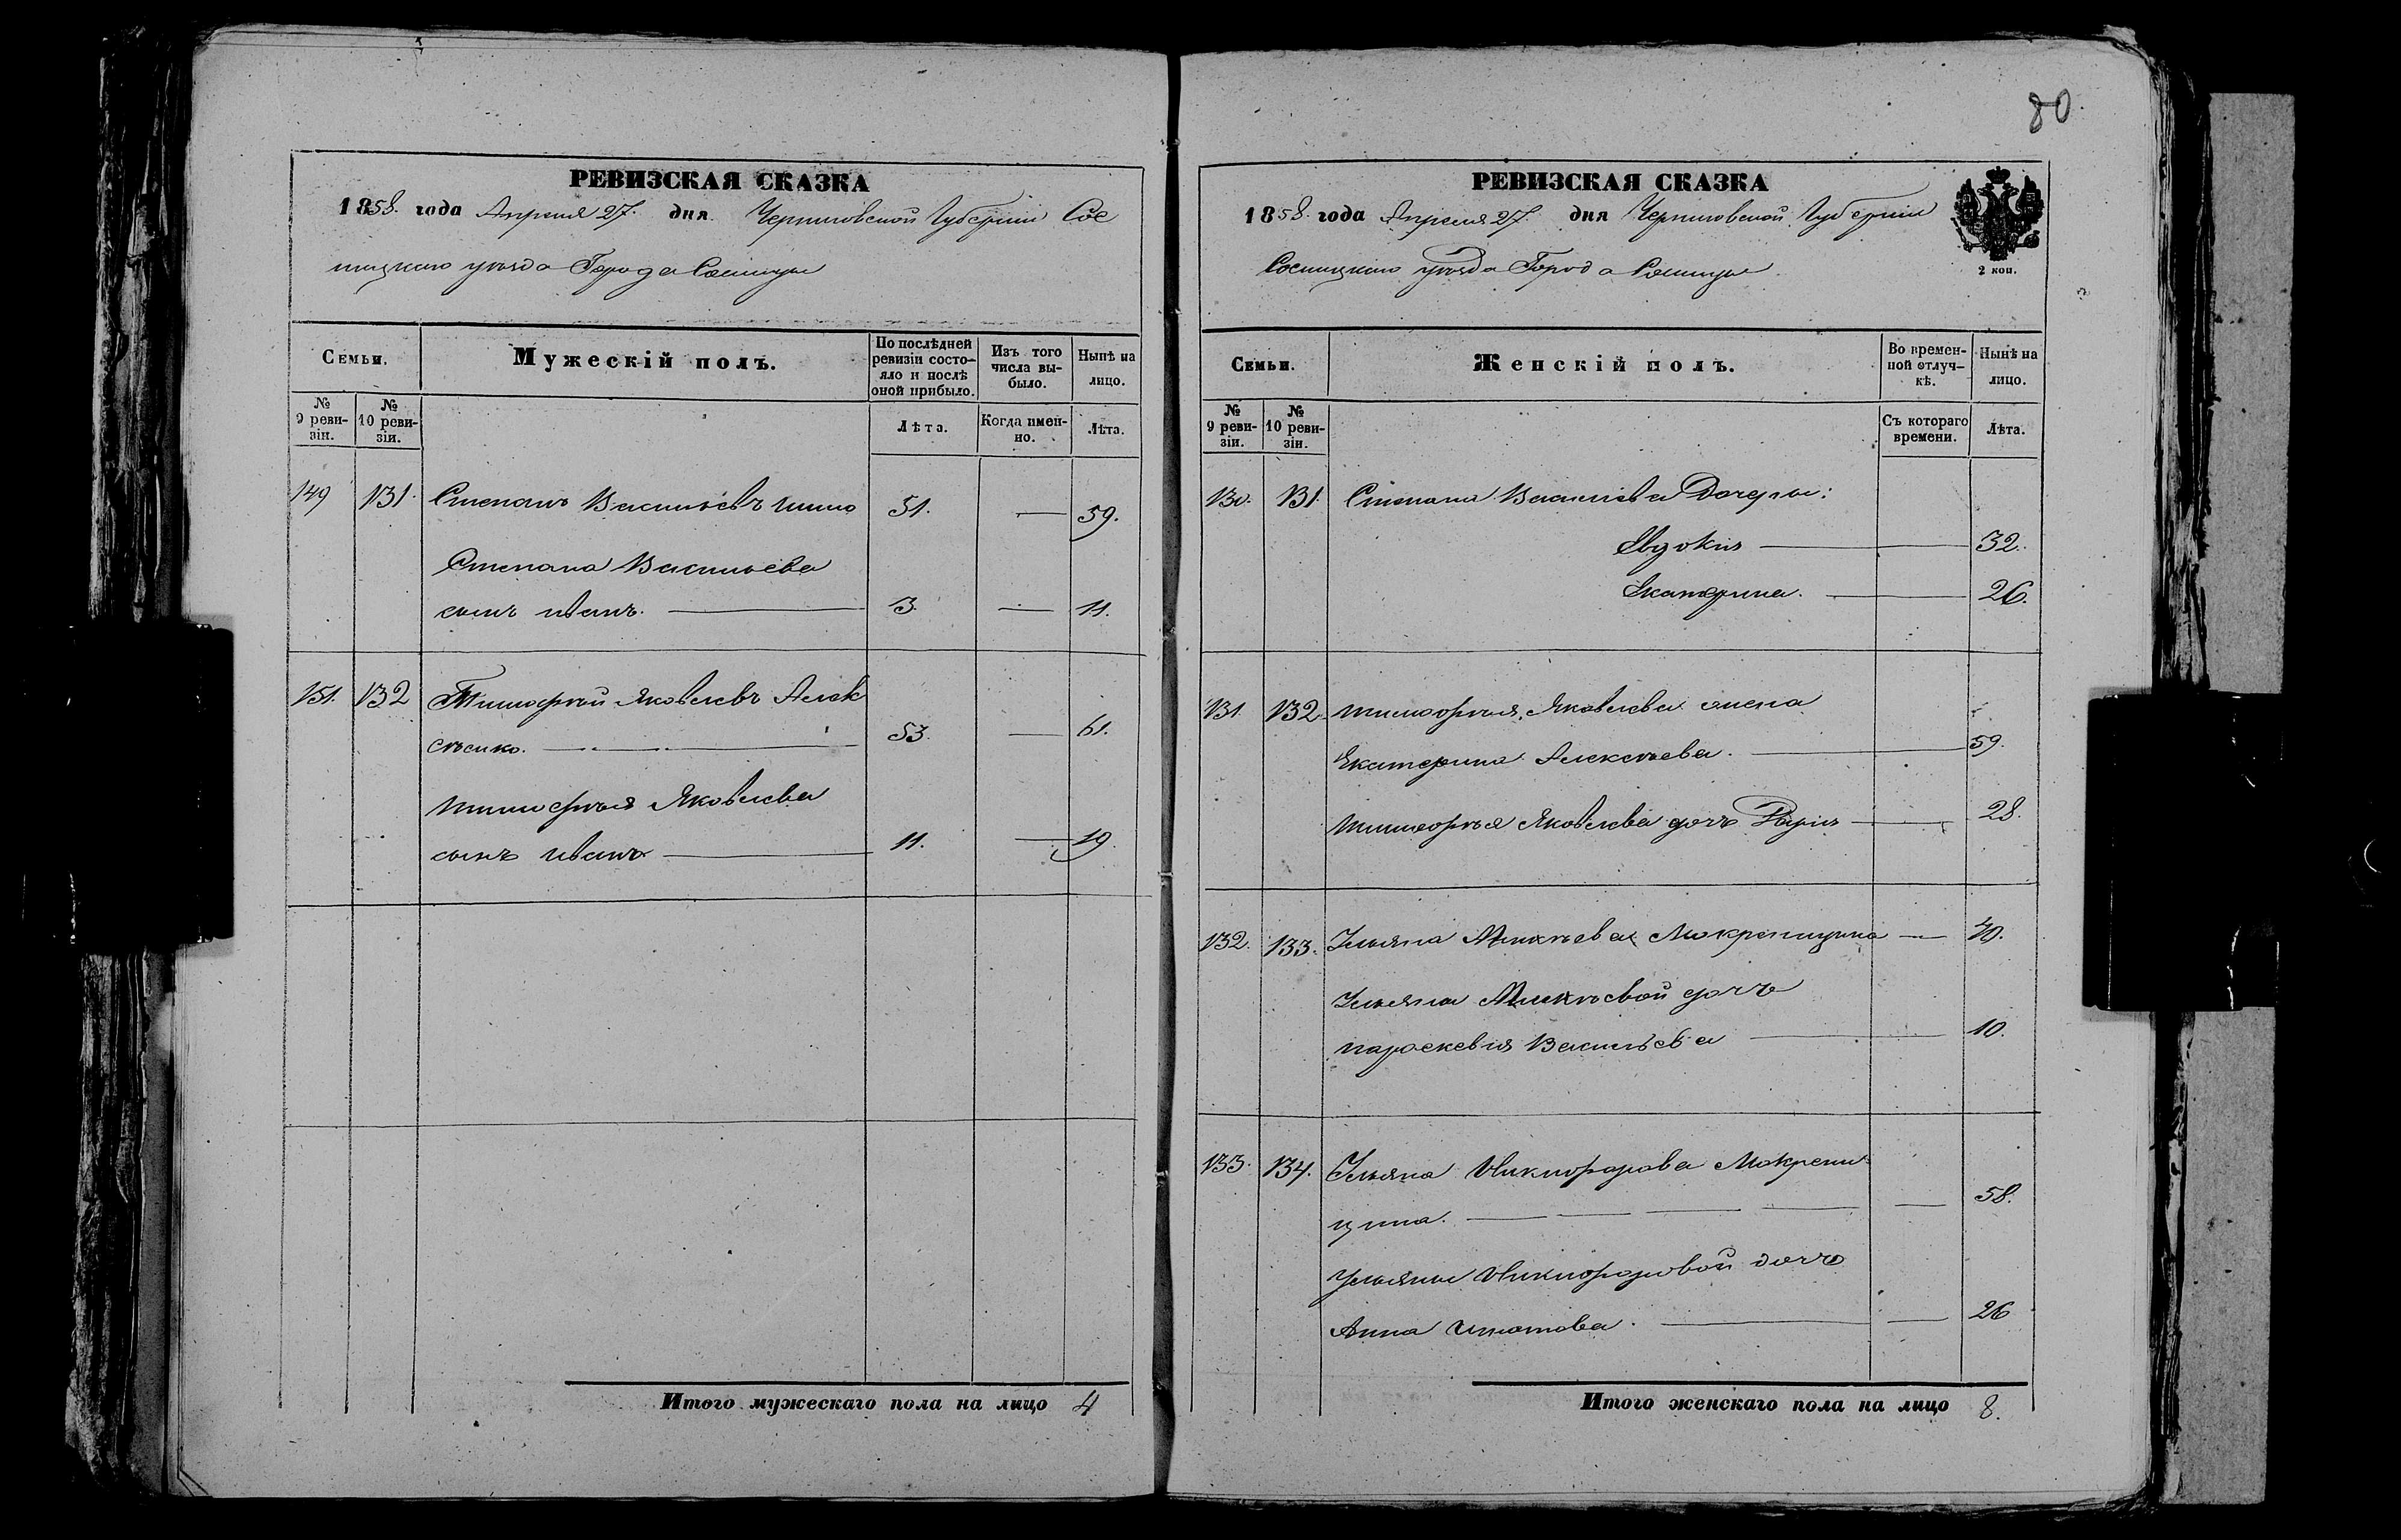 80
РЕВИЗСКАЯ СКАЗКА
1858. года Апреля 27. дня Черниговской Губерніи Сос
ницкаго уѣзда Города Сосницы
Семьи.
Мужескій полъ.
По послѣдней ревизіи состояло и послѣ оной прибыло.
Изъ того числа выбыло.
Нынѣ на лицо.
№ 9 ревизіи.
№ 10 ревизіи.
Лѣта.
Когда именно.
Лѣта.
149 131. Степанъ Васильевъ 51. — 59.
Степана Васильева
сынъ иванъ. — 3 — 11.
151. 132 Тимофѣй Яковлевъ Алек
сѣенко. — 53. — 61.
тимофѣя Яковлева
сынъ иванъ — 11. — 19.
Итого мужескаго пола на лицо 4
РЕВИЗСКАЯ СКАЗКА
1858. года Апреля 27. дня Черниговской Губерніи
Сосницкаго уѣзда Города Сосницы
2 коп.
Семьи.
Женскій полъ.
Во временной отлучкѣ.
Нынѣ на лицо.
№ 9 ревизіи.
№ 10 ревизіи.
Съ котораго времени.
Лѣта.
130. 131. Степана Василіева Дочери:
Евдокія — 32.
Екатерина. — 26.
131. 132. тимофѣя Яковлева жена
Екатерина Алексѣева. — 59.
тимофѣя Яковлева дочь — 28.
132. 133. Ульяна — 40.
Ульяны дочь
параскевія Васильева — 10.
133. 134. Ульяна Никифорова
— 58.
Ульяны Никифоровой дочь
Анна — 26
Итого женскаго пола на лицо 8.